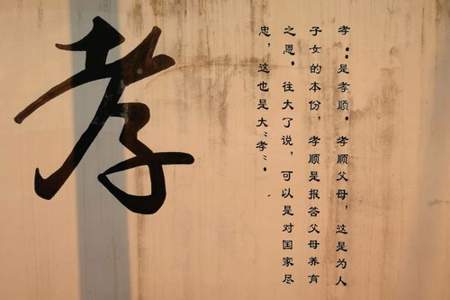 孝
孝：是孝顺。孝顺父母，这是为人
子女的本份，孝顺是报答父母养育
之恩。往大了说，可以是对国家尽
忠，这也是大“孝”。